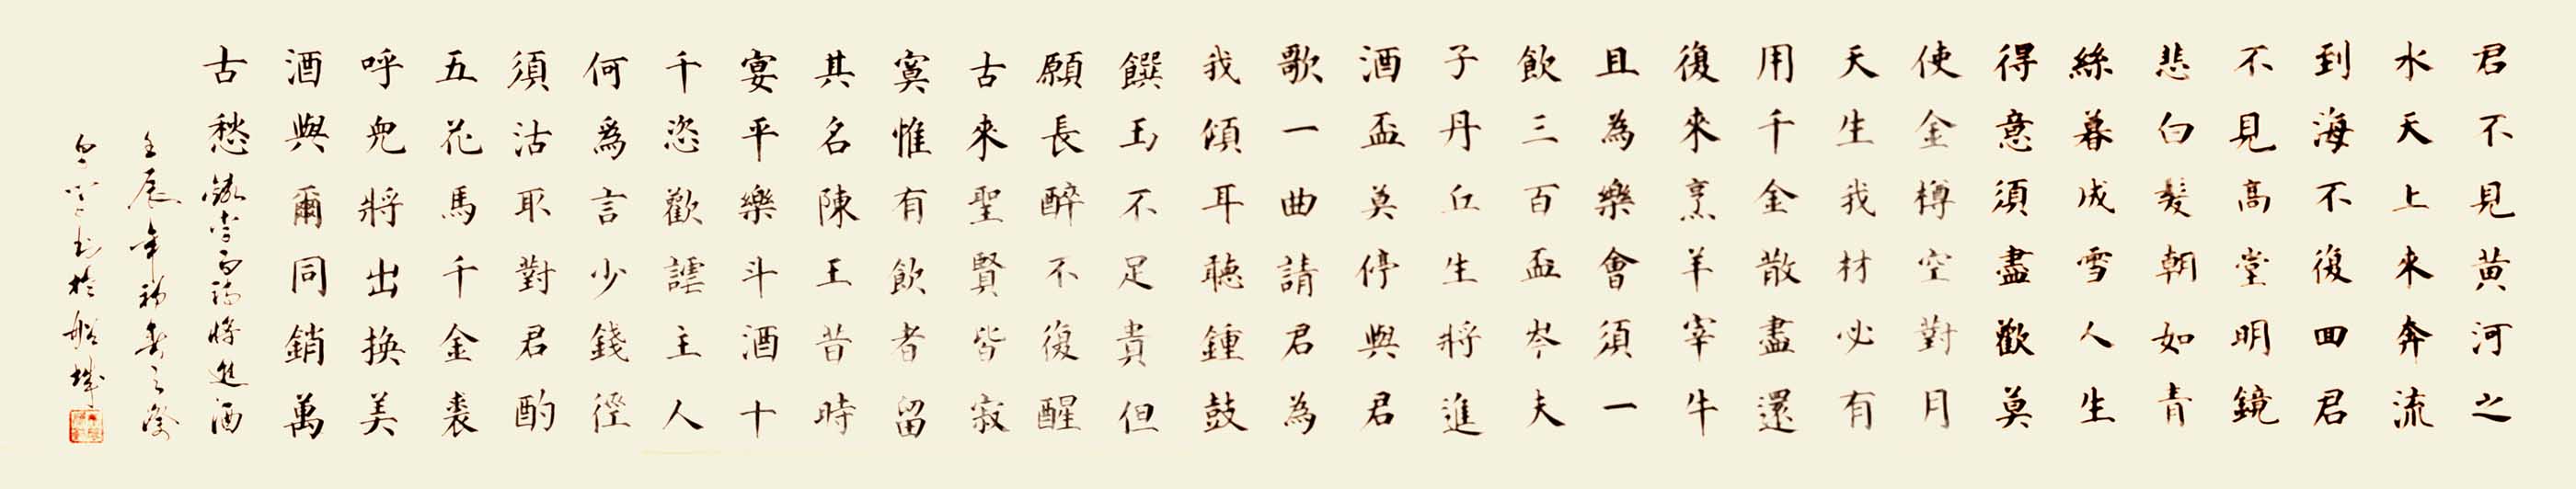 君不見黄河之
水天上来奔流
到海不復回君
不見高堂明鏡
悲白髮朝如青
絲暮成雪人生
得意須盡歡莫
使金樽空對月
天生我材必有
用千金散盡還
復來烹羊宰牛
且為樂會須一
飲三百盃岑夫
子丹丘生將進
酒盃莫停與君
歌一曲請君為
我傾耳聽鍾鼓
饌玉不足貴但
願長醉不復醒
古來聖賢皆寂
寞惟有飲者留
其名陳王昔時
宴平樂斗酒十
千恣歡謔主人
何爲言少錢徑
須沽取對君酌
五花馬千金裘
呼兒將出換美
酒與爾同銷萬
古愁 錄李白詩將進酒
壬辰年初春之際
書於船城